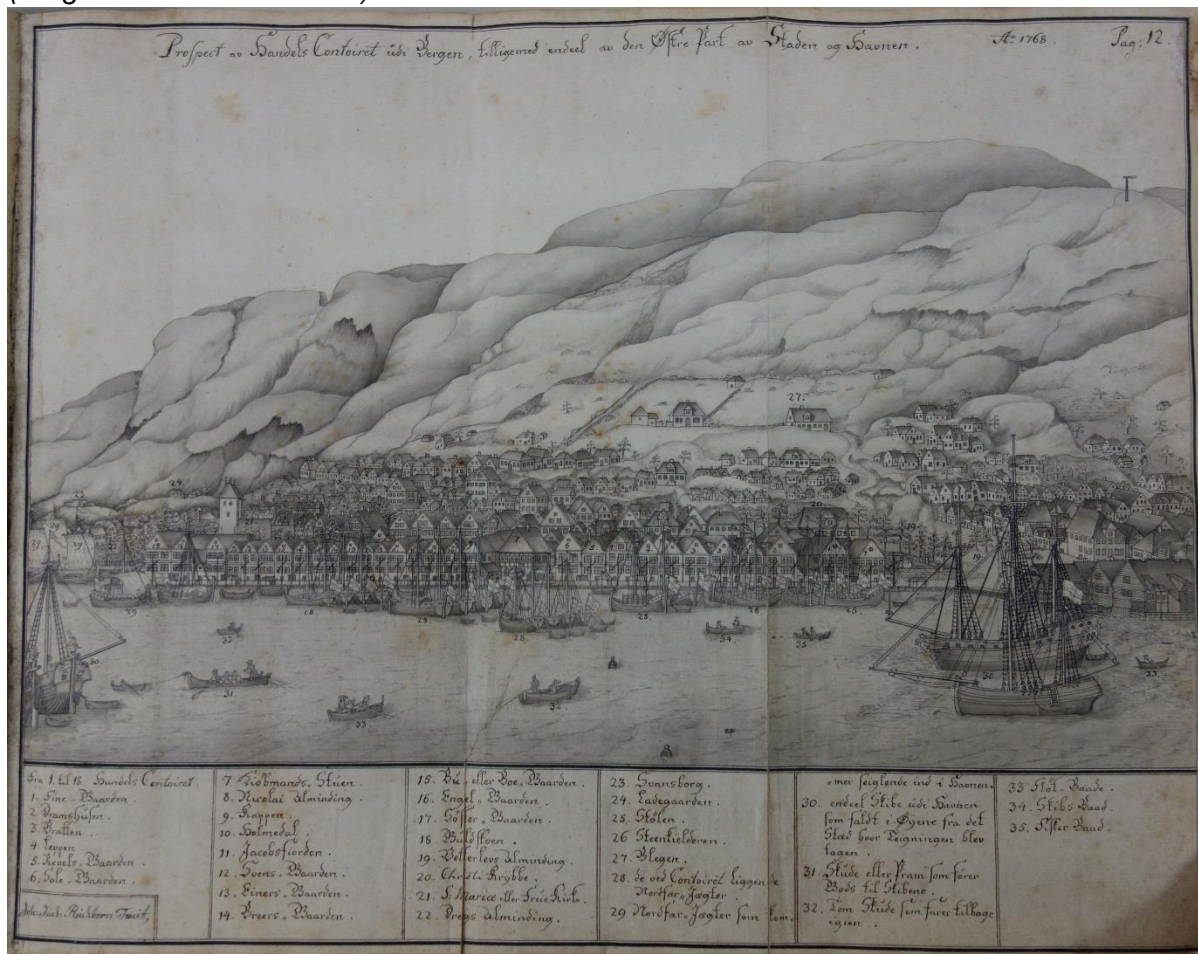 Prospect av Handels Contoiret udi Bergen, tilligemed endeel av den Østre Part av Staden og Havnen.
Aº 1768.
Pag: 12
Fra 1. til 18. Handels Contoiret
1. Fine-Gaarden.
2. Bramshusen.
3. Bratten.
4. Leppen.
5. Revels-Gaarden.
6. Sole-Gaarden.
Joh: Joach: Reichborn Fecit,
7. Kiøbmands-Stuen.
8. Nicolai Alminding.
9. Kappen.
10. Holmedal.
11. Jacobsfiorden.
12. Svens-Gaarden.
13. Einers-Gaarden.
14. Breers-Gaarden.
15. Bu- eller Boe-Gaarden.
16. Engel-Gaarden.
17. Gaarden.
18 
19. Alminding.
20. Christi Krybbe.
21. S. Mariæ eller Kirke.
22. Dregs Alminding.
23. Svansborg.
24. Ladegaarden.
25. Stölen.
26 Steenkielderen.
27. Blegen.
28. de ved Contoiret liggende
Nordfar-Jægter.
29 Nordfar-Jægter som kom-
-mer seiglende ind i Havnen.
30. endeel Skibe udi Havnen
som faldt i Øyene fra det
Stæd hvor Teigningen blev
tagen.
31. Skude eller Pram som fører
Gods til Skibene.
32. Tom Skude som farer tilbage
igien.
33 Baade.
34. Skibs Baad.
35. Fisker Baad.